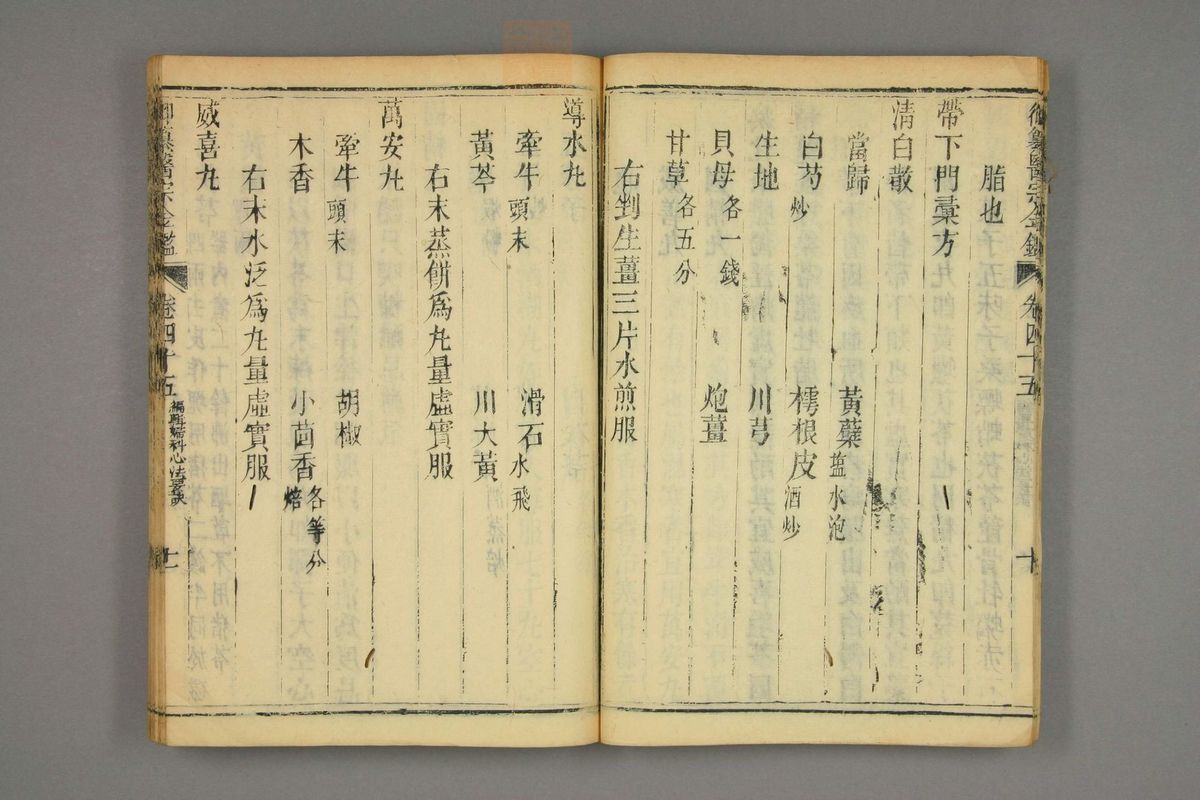 脂也
帶下門彙方
清白散
當歸 黃蘗塩水泡
白芍炒 樗根皮酒炒
生地 川芎
貝母各一錢 炮薑
甘草各五分
右剉生薑三片水煎服
御纂醫宗金鑑 卷四十五 十
導水丸
牽牛頭末 滑石水飛
黃芩 川大黃
右末蒸餅為丸量虛實服
萬安丸
牽牛頭末 胡椒
木香 小茴香焙各等分
右末水泛為丸量虛實服
威喜丸
御纂醫宗金鑑 卷四十五 編輯婦科心法要訣 十一